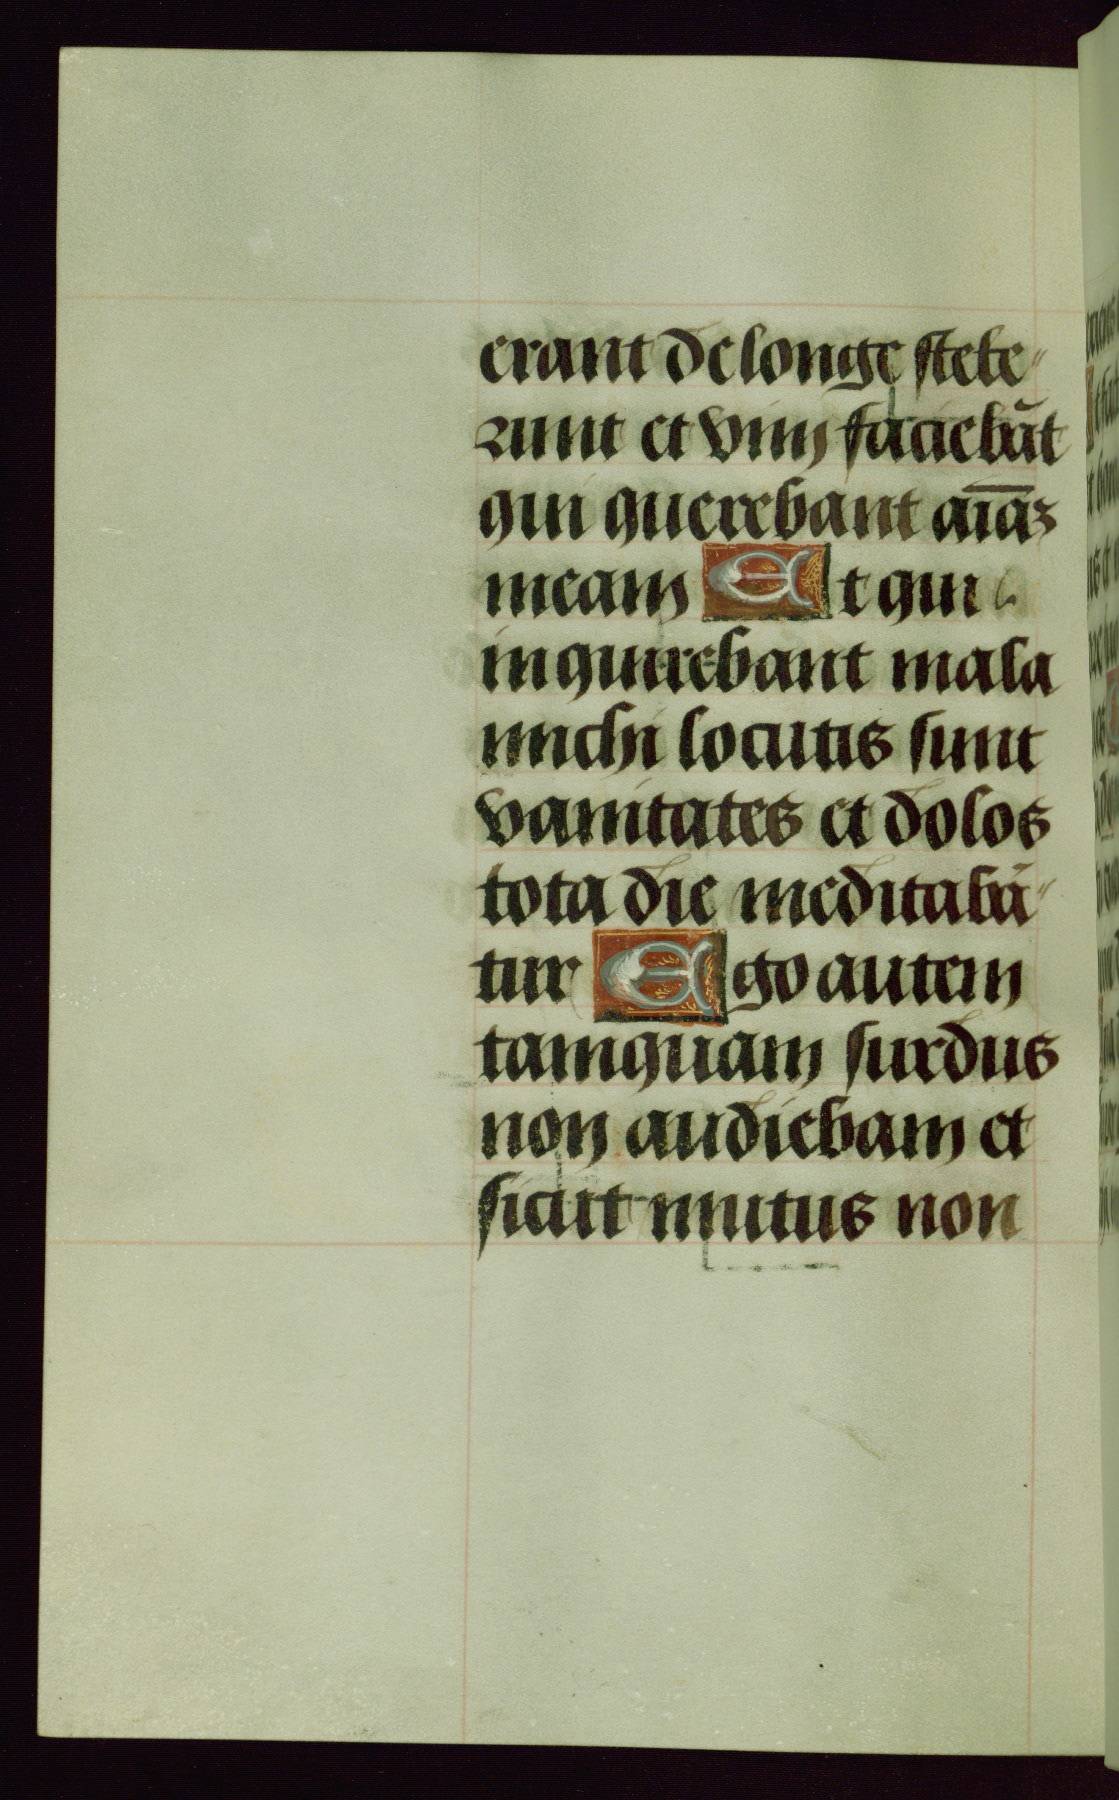 erant de longe stete-
runt et vim faciebāt
qui querebant aīāz
meam Et qui
inquirebant mala
michi locutis sunt
vanitates et dolos
tota die meditabā-
tur Ego autem
tamquam surdus
non audiebam et
sicut mutus non